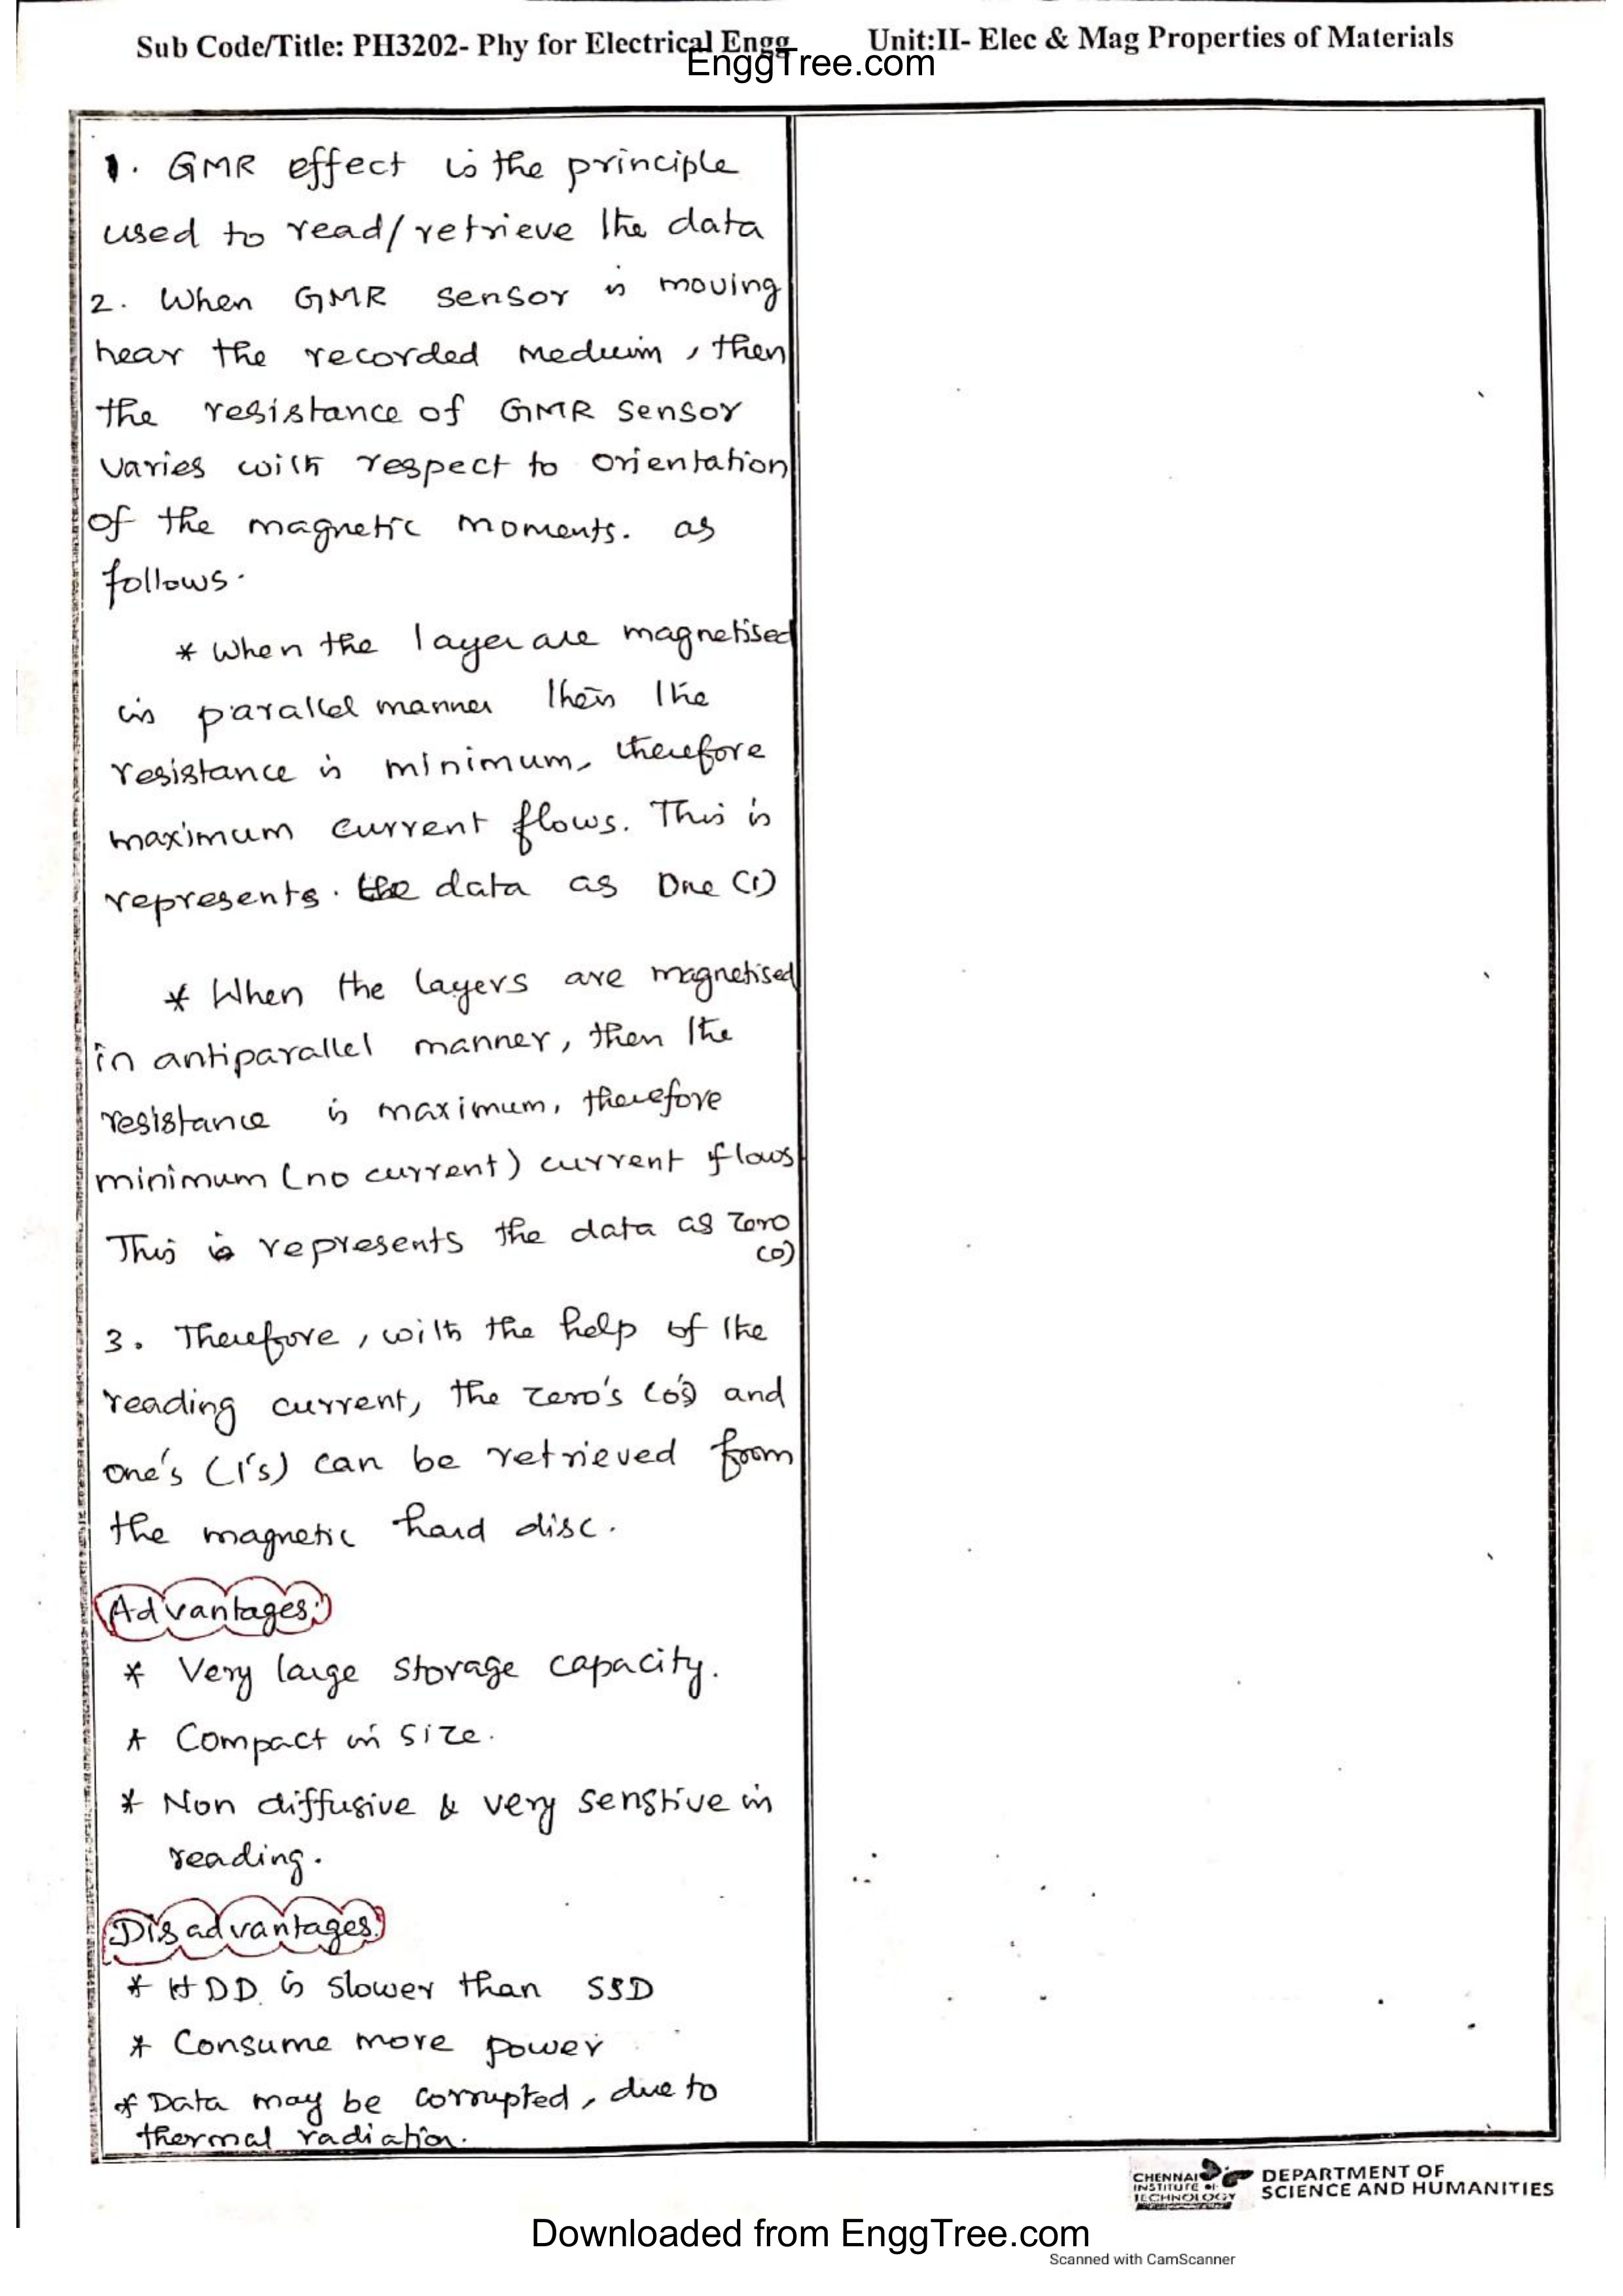 Sub Code/Title: PH3202- Phy for Electrical Engg
Unit:II- Elec & Mag Properties of Materials
EnggTree.com
1. GMR effect is the principle
used to read/retrieve the data
2. When GMR sensor is moving
near the recorded medium, then
the resistance of GMR sensor
varies with respect to orientation
of the magnetic moments. as
follows.
* When the layer are magnetised
in parallel manner then the
resistance is minimum, therefore
maximum current flows. This is
represents. the data as One (1)
* When the layers are magnetised
in antiparallel manner, then the
resistance is maximum, therefore
minimum (no current) current flows
This is represents the data as zero
(0)
3. Therefore, with the help of the
reading current, the zero's (0's) and
one's (1's) can be retrieved from
the magnetic hard disc.
Advantages:
* Very large storage capacity.
* Compact in size.
* Non diffusive & very senstive in
reading.
Disadvantages:
* HDD is slower than SSD
* Consume more power
* Data may be corrupted, due to
thermal radiation.
CHENNAI
INSTITUTE OF
TECHNOLOGY
DEPARTMENT OF
SCIENCE AND HUMANITIES
Downloaded from EnggTree.com
Scanned with CamScanner